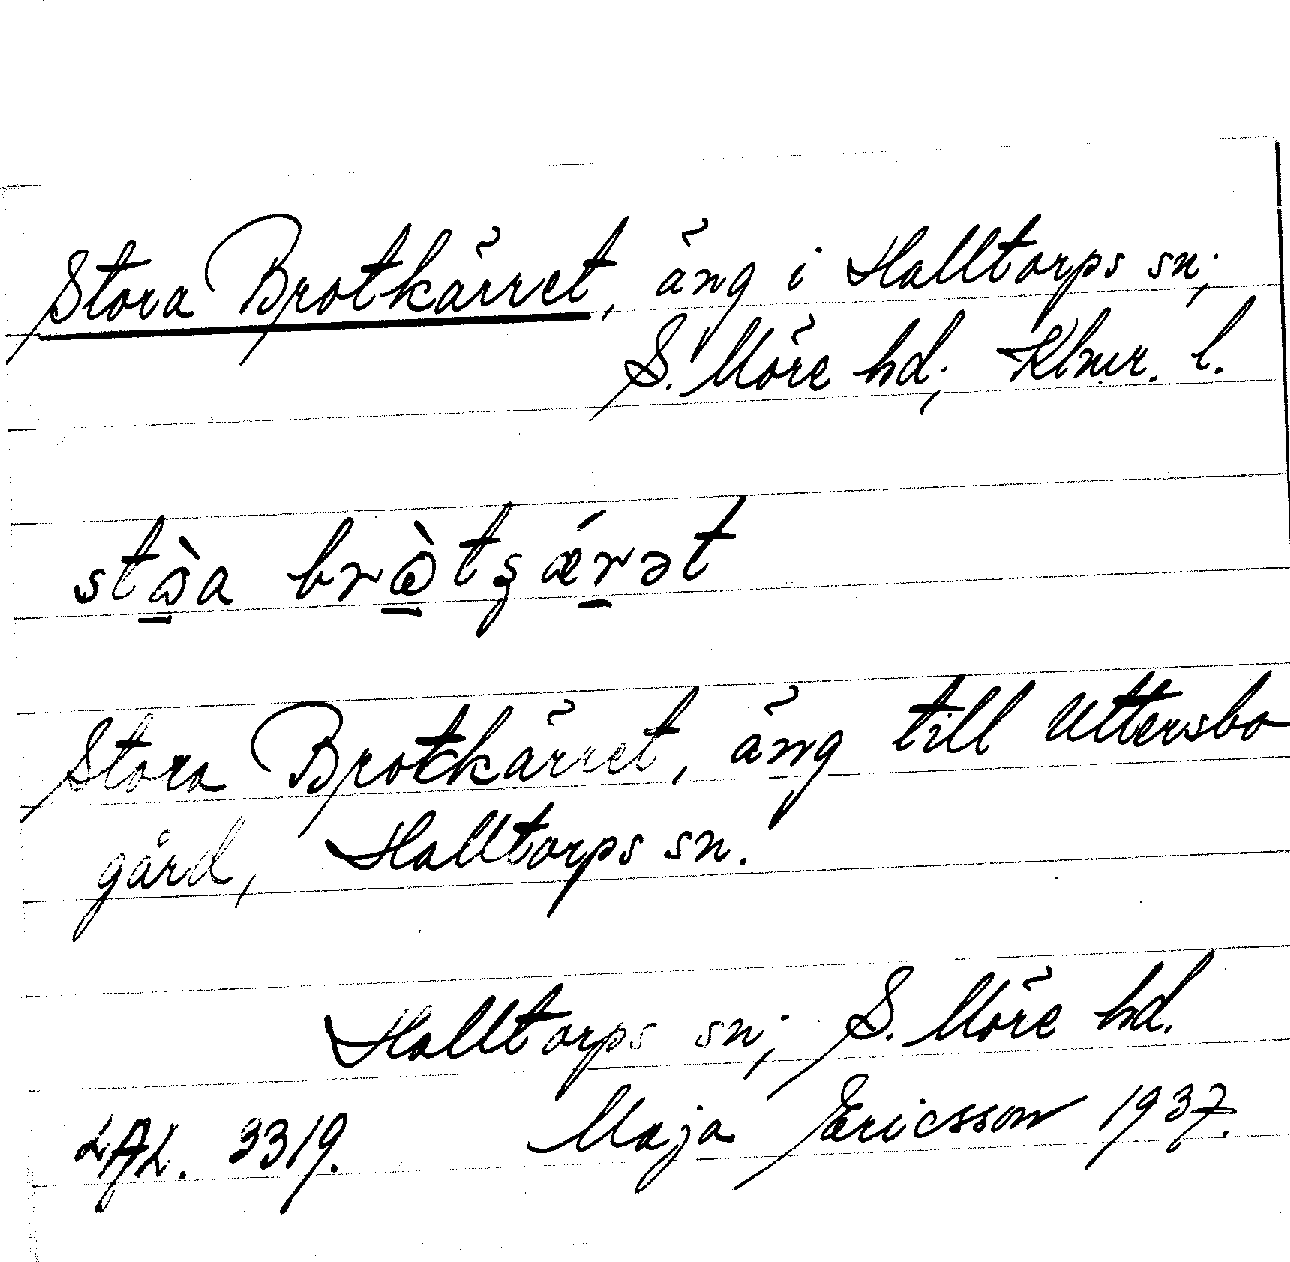 Stora Brotkärret, äng i Halltorps sn;
S. Möre hd; Klmr. l.
stɷ̠̀a brɷ̠̀tʒǽr̠ət
Stora Brotkärret, äng till Uttersbo
gård, Halltorps sn.
Halltorps sn; S. Möre hd.
LAL. 3319. Maja Ericsson 1937.